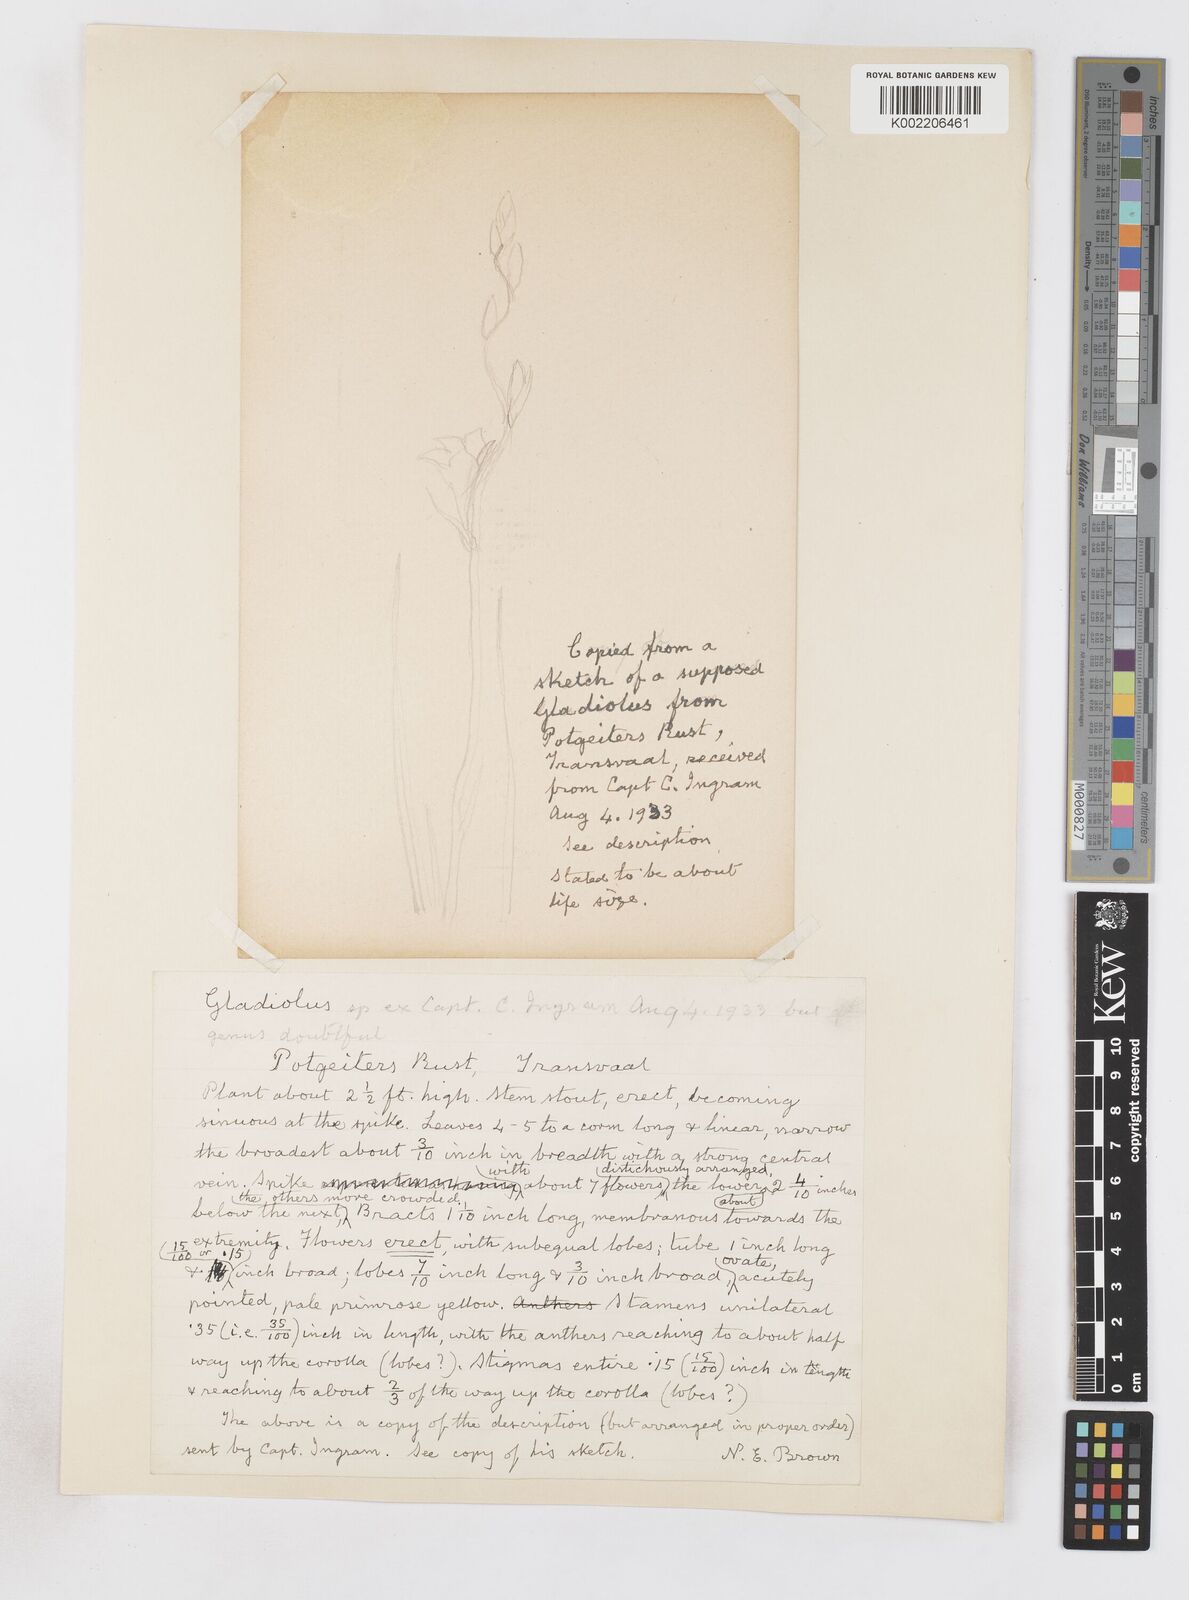 ROYAL BOTANIC GARDENS KEW
K002206461
Copied from a
sketch of a supposed
Gladiolus from
Potgeiters Rust,
Transvaal, received
from Capt C. Ingram
Aug 4. 1933
See description
stated to be about
life size.
Gladiolus sp ex Capt. C. Ingram Aug 4. 1933 but
genus doubtful
Potgeiters Rust, Transvaal
Plant about 2 1/2 ft. high. Stem stout, erect, becoming
sinuous at the spike. Leaves 4-5 to a corm long & linear, narrow
the broadest about 3/10 inch in breadth with a strong central
vein. Spike with about 7 flowers distichously arranged, the lower 2 4/10 inches
below the next, the others more crowded. Bracts 1 1/10 inch long, membranous about towards the
extremity. Flowers erect, with subequal lobes; tube 1 inch long
& (15/100 or .15) inch broad; lobes 7/10 inch long & 3/10 inch broad, ovate, acutely
pointed, pale primrose yellow. Anthers Stamens unilateral
.35 (i.e. 35/100) inch in length, with the anthers reaching to about half
way up the corolla (lobes?). Stigmas entire .15 (15/100) inch in length
& reaching to about 2/3 of the way up the corolla (lobes?)
The above is a copy of the description (but arranged in proper order)
sent by Capt. Ingram. See copy of his sketch. N. E. Brown
inches
centimeters
Density
Don Williams
M000827
Royal Botanic Gardens Kew
Kew
0 1 2 3 4 5 6 7 8 9 10
cm
copyright reserved